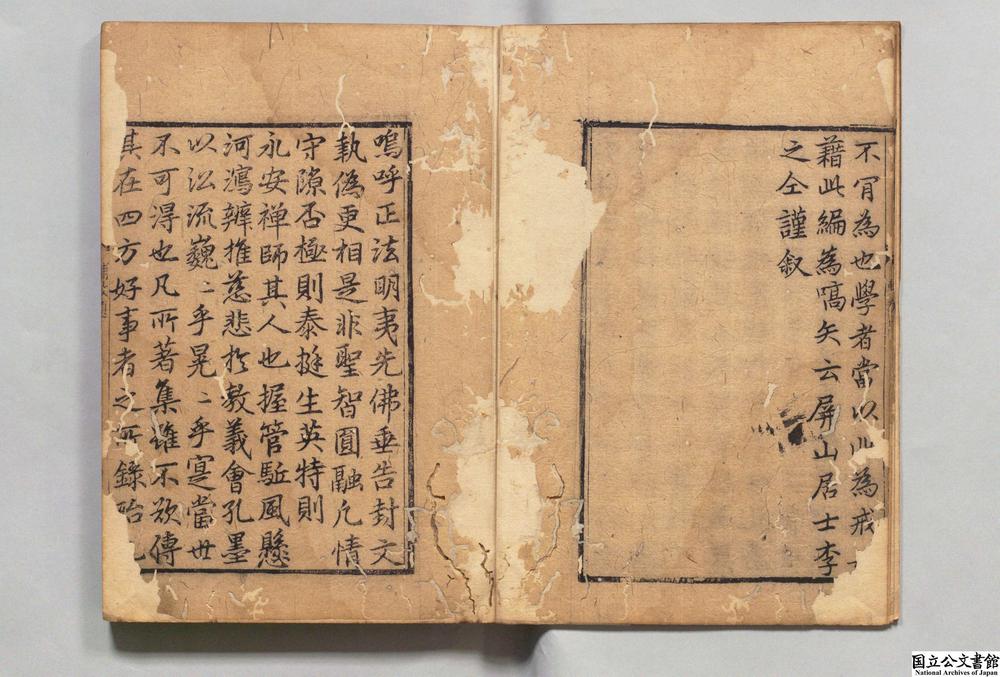 不肎為也學者當以此為戒
藉此編為嚆矢云屏山居士李
之仝謹叙
嗚呼正法明夷先佛垂告封文
執偽更相是非聖智圓融凢情
守隙否極則泰挺生英特則
永安禅師其人也握管駈風懸
河瀉辨推慈悲扵教義會孔墨
以㳂流巍〻乎晃〻乎寔當世
不可淂也凡所著集雖不欲傳
其在四方好事者之所錄殆
国立公文書館
National Archives of Japan